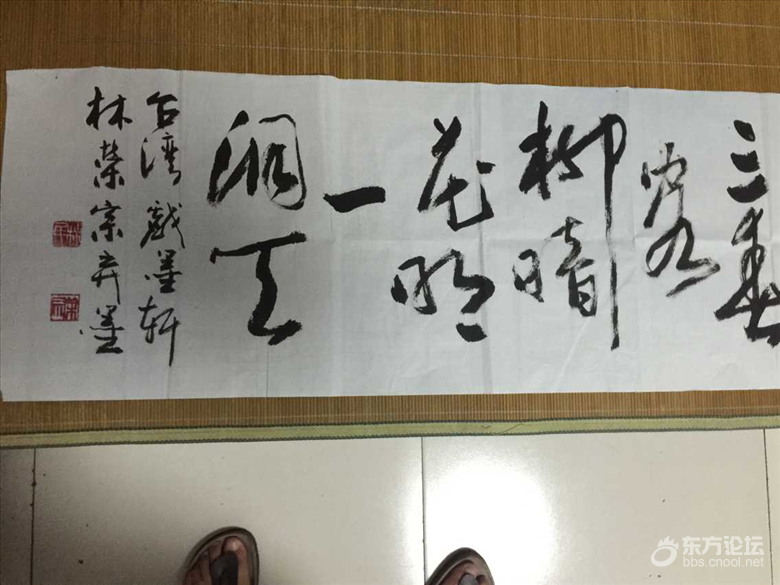 三
柳暗
花明
一
洞天
台灣戲墨軒
林榮宗弄墨
东方论坛
bbs.cnool.net